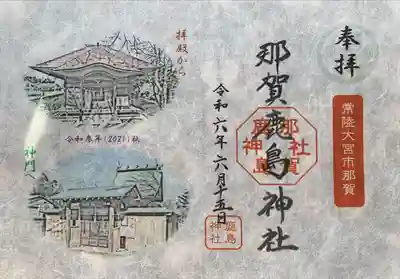 奉拝
常陸大宮市那賀
那賀鹿島神社
那賀
鹿島
神社
令和六年六月十五日
鹿島
神社
拝殿から
令和参年(2021)秋
神門